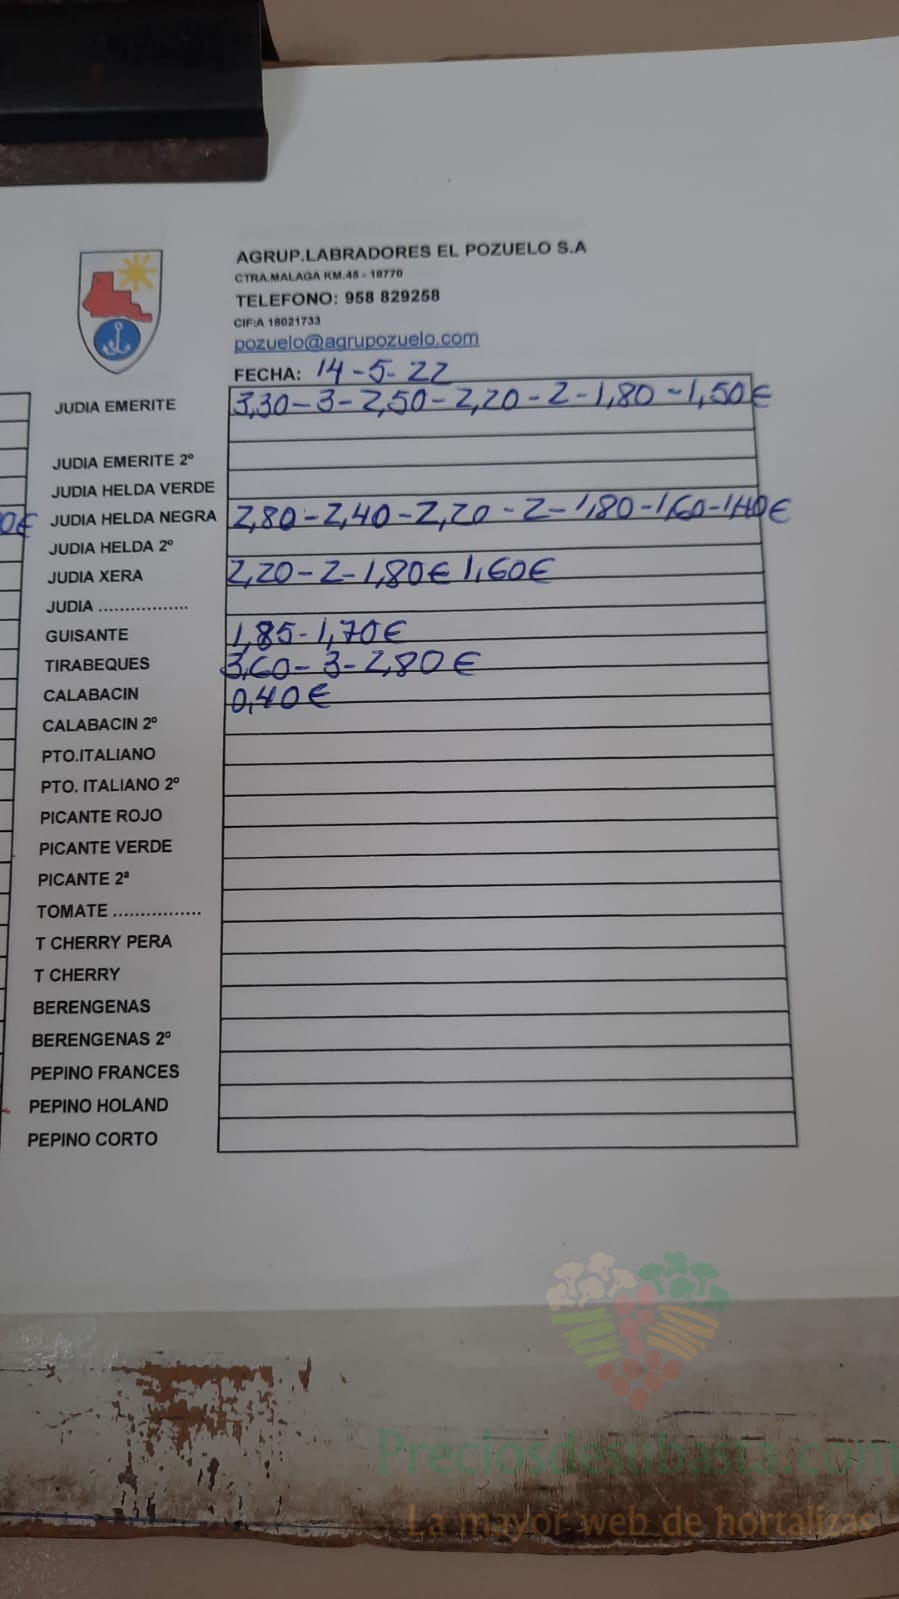 AGRUP.LABRADORES EL POZUELO S.A
CTRA.MALAGA KM.45 - 18770
TELEFONO: 958 829258
CIF:A 18021733
pozuelo@agrupozuelo.com
FECHA: 14-5-22
JUDIA EMERITE 3,30-3-2,50-2,20-2-1,80-1,50€
JUDIA EMERITE 2º
JUDIA HELDA VERDE
0€ JUDIA HELDA NEGRA 2,80-2,40-2,20-2-1,80-1,60-1,40€
JUDIA HELDA 2º
JUDIA XERA 2,20-2-1,80€ 1,60€
JUDIA .................
GUISANTE 1,85-1,70€
TIRABEQUES 3,60-3-2,80€
CALABACIN 0,40€
CALABACIN 2º
PTO.ITALIANO
PTO. ITALIANO 2º
PICANTE ROJO
PICANTE VERDE
PICANTE 2ª
TOMATE ................
T CHERRY PERA
T CHERRY
BERENGENAS
BERENGENAS 2º
PEPINO FRANCES
PEPINO HOLAND
PEPINO CORTO
Preciosdesubasta.com
La mayor web de hortalizas